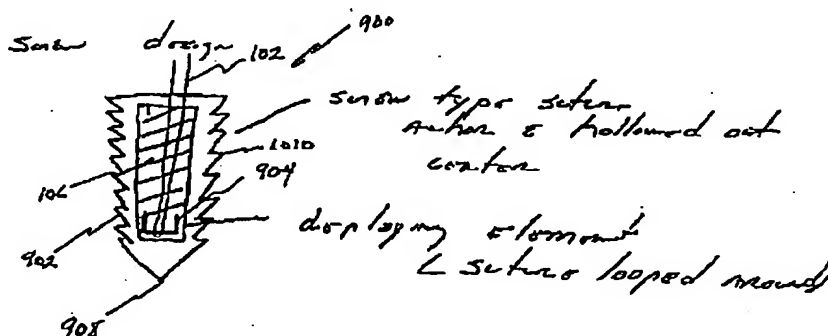 900
Screw design
102
screw type suture
anchor c hollowed out
center
1010
904
106
deploying element
c suture looped around
902
908